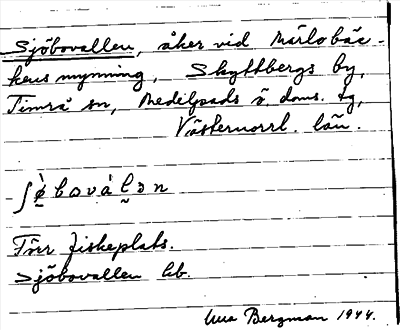 Sjöbovallen, åker vid Märlobäc-
kens mynning, Skyttbergs by,
Timrå sn, Medelpads ö. doms. tg,
Västernorrl. län.
Förr fiskeplats.
Sjöbovallen hb.
Bergman 1944.